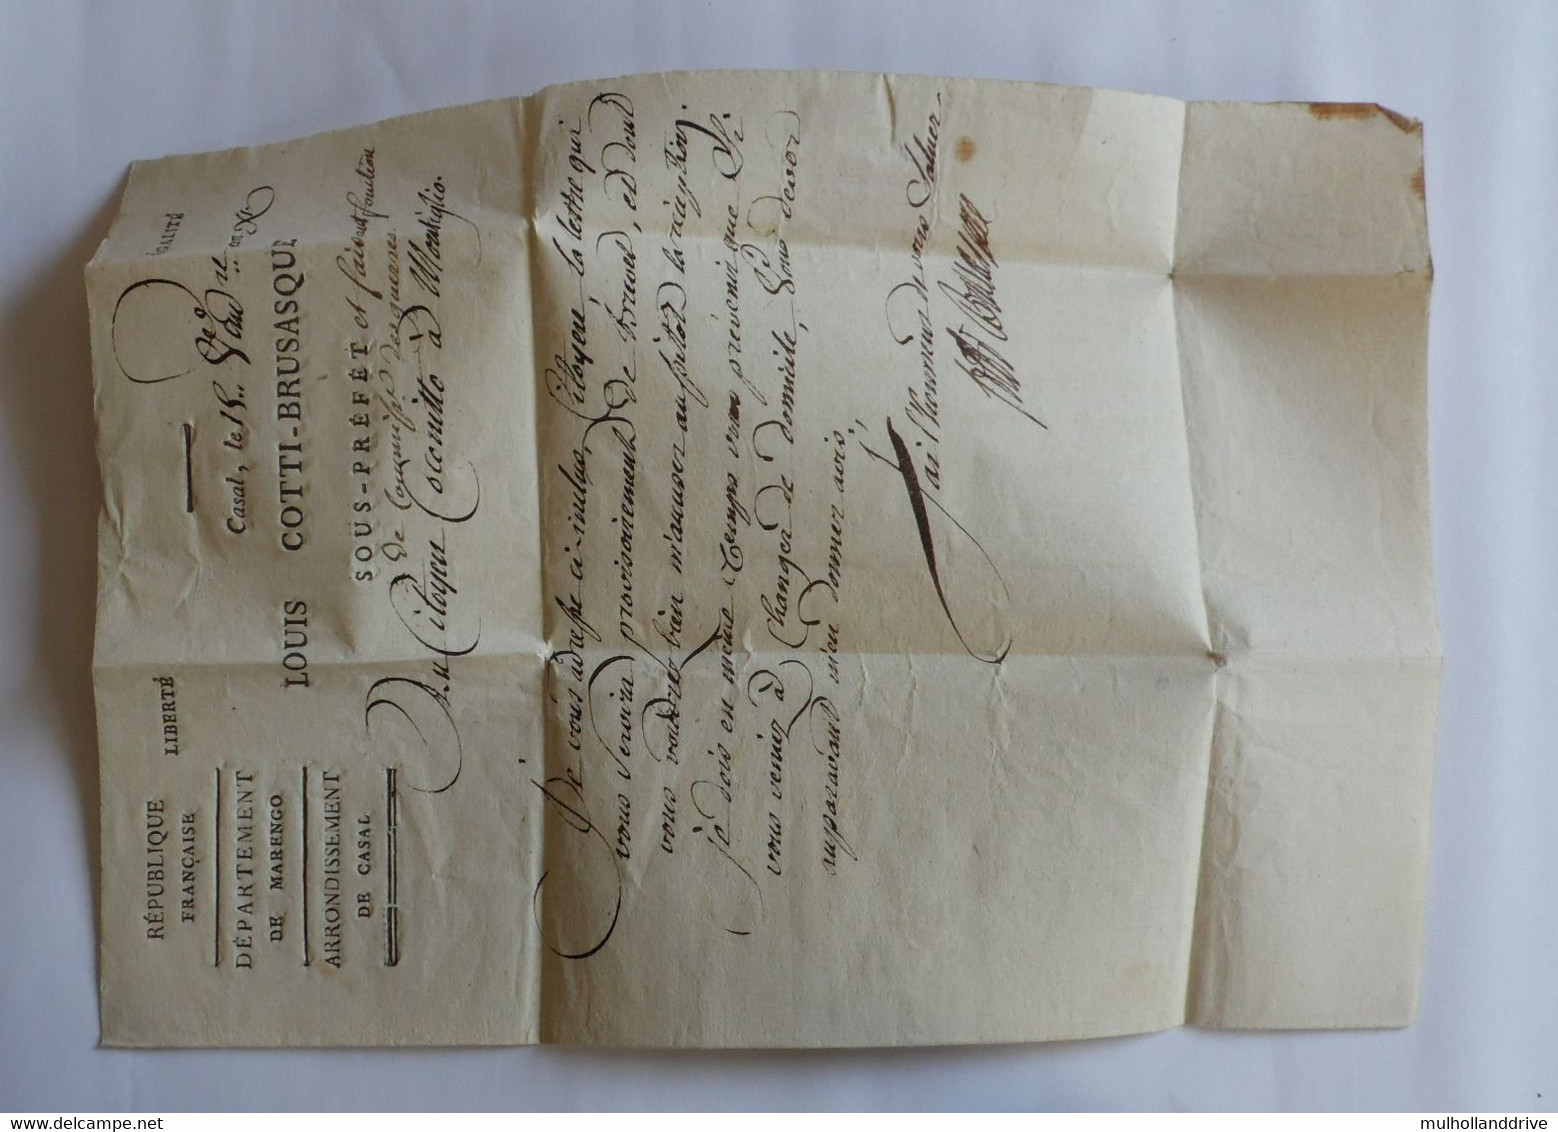 RÉPUBLIQUE
FRANÇAISE
LIBERTÉ
ÉGALITÉ
DÉPARTEMENT
DE MARENGO
ARRONDISSEMENT
DE CASAL
Casal, le 15 an XI
LOUIS COTTI-BRUSASQUE
SOUS-PRÉFET et faisant fonction
de Commissaire des guerres.
Au Citoyen à Montiglio.
Je vous adresse ci inclus, Citoyen, la lettre qui
vous servira provisoirement de Brevet, et dont
vous voudrez bien m'accuser aussitôt la réception.
je dois en même temps vous prévenir que Si
vous veniez à Changer de domicile, Vous devez
auparavant m'en donner avis.
J'ai l'honneur de vous Saluer
mulhollanddrive